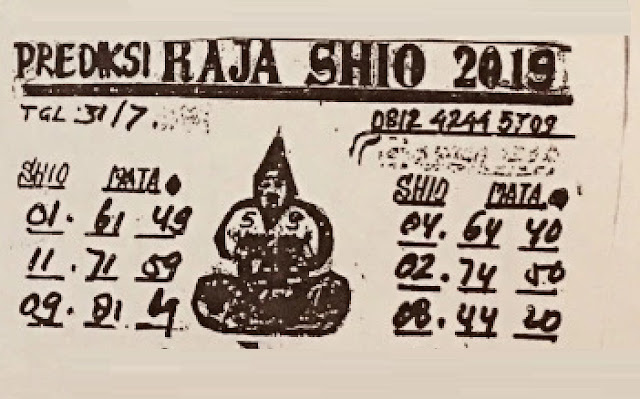 PREDIKSI RAJA SHIO 2019
TGL 31/7.
0812 4244 5709
SHIO MATA
01. 61 49
11. 71 59
09. 81
5 9
SHIO MATA
04. 64 40
02. 74 50
08. 44 20